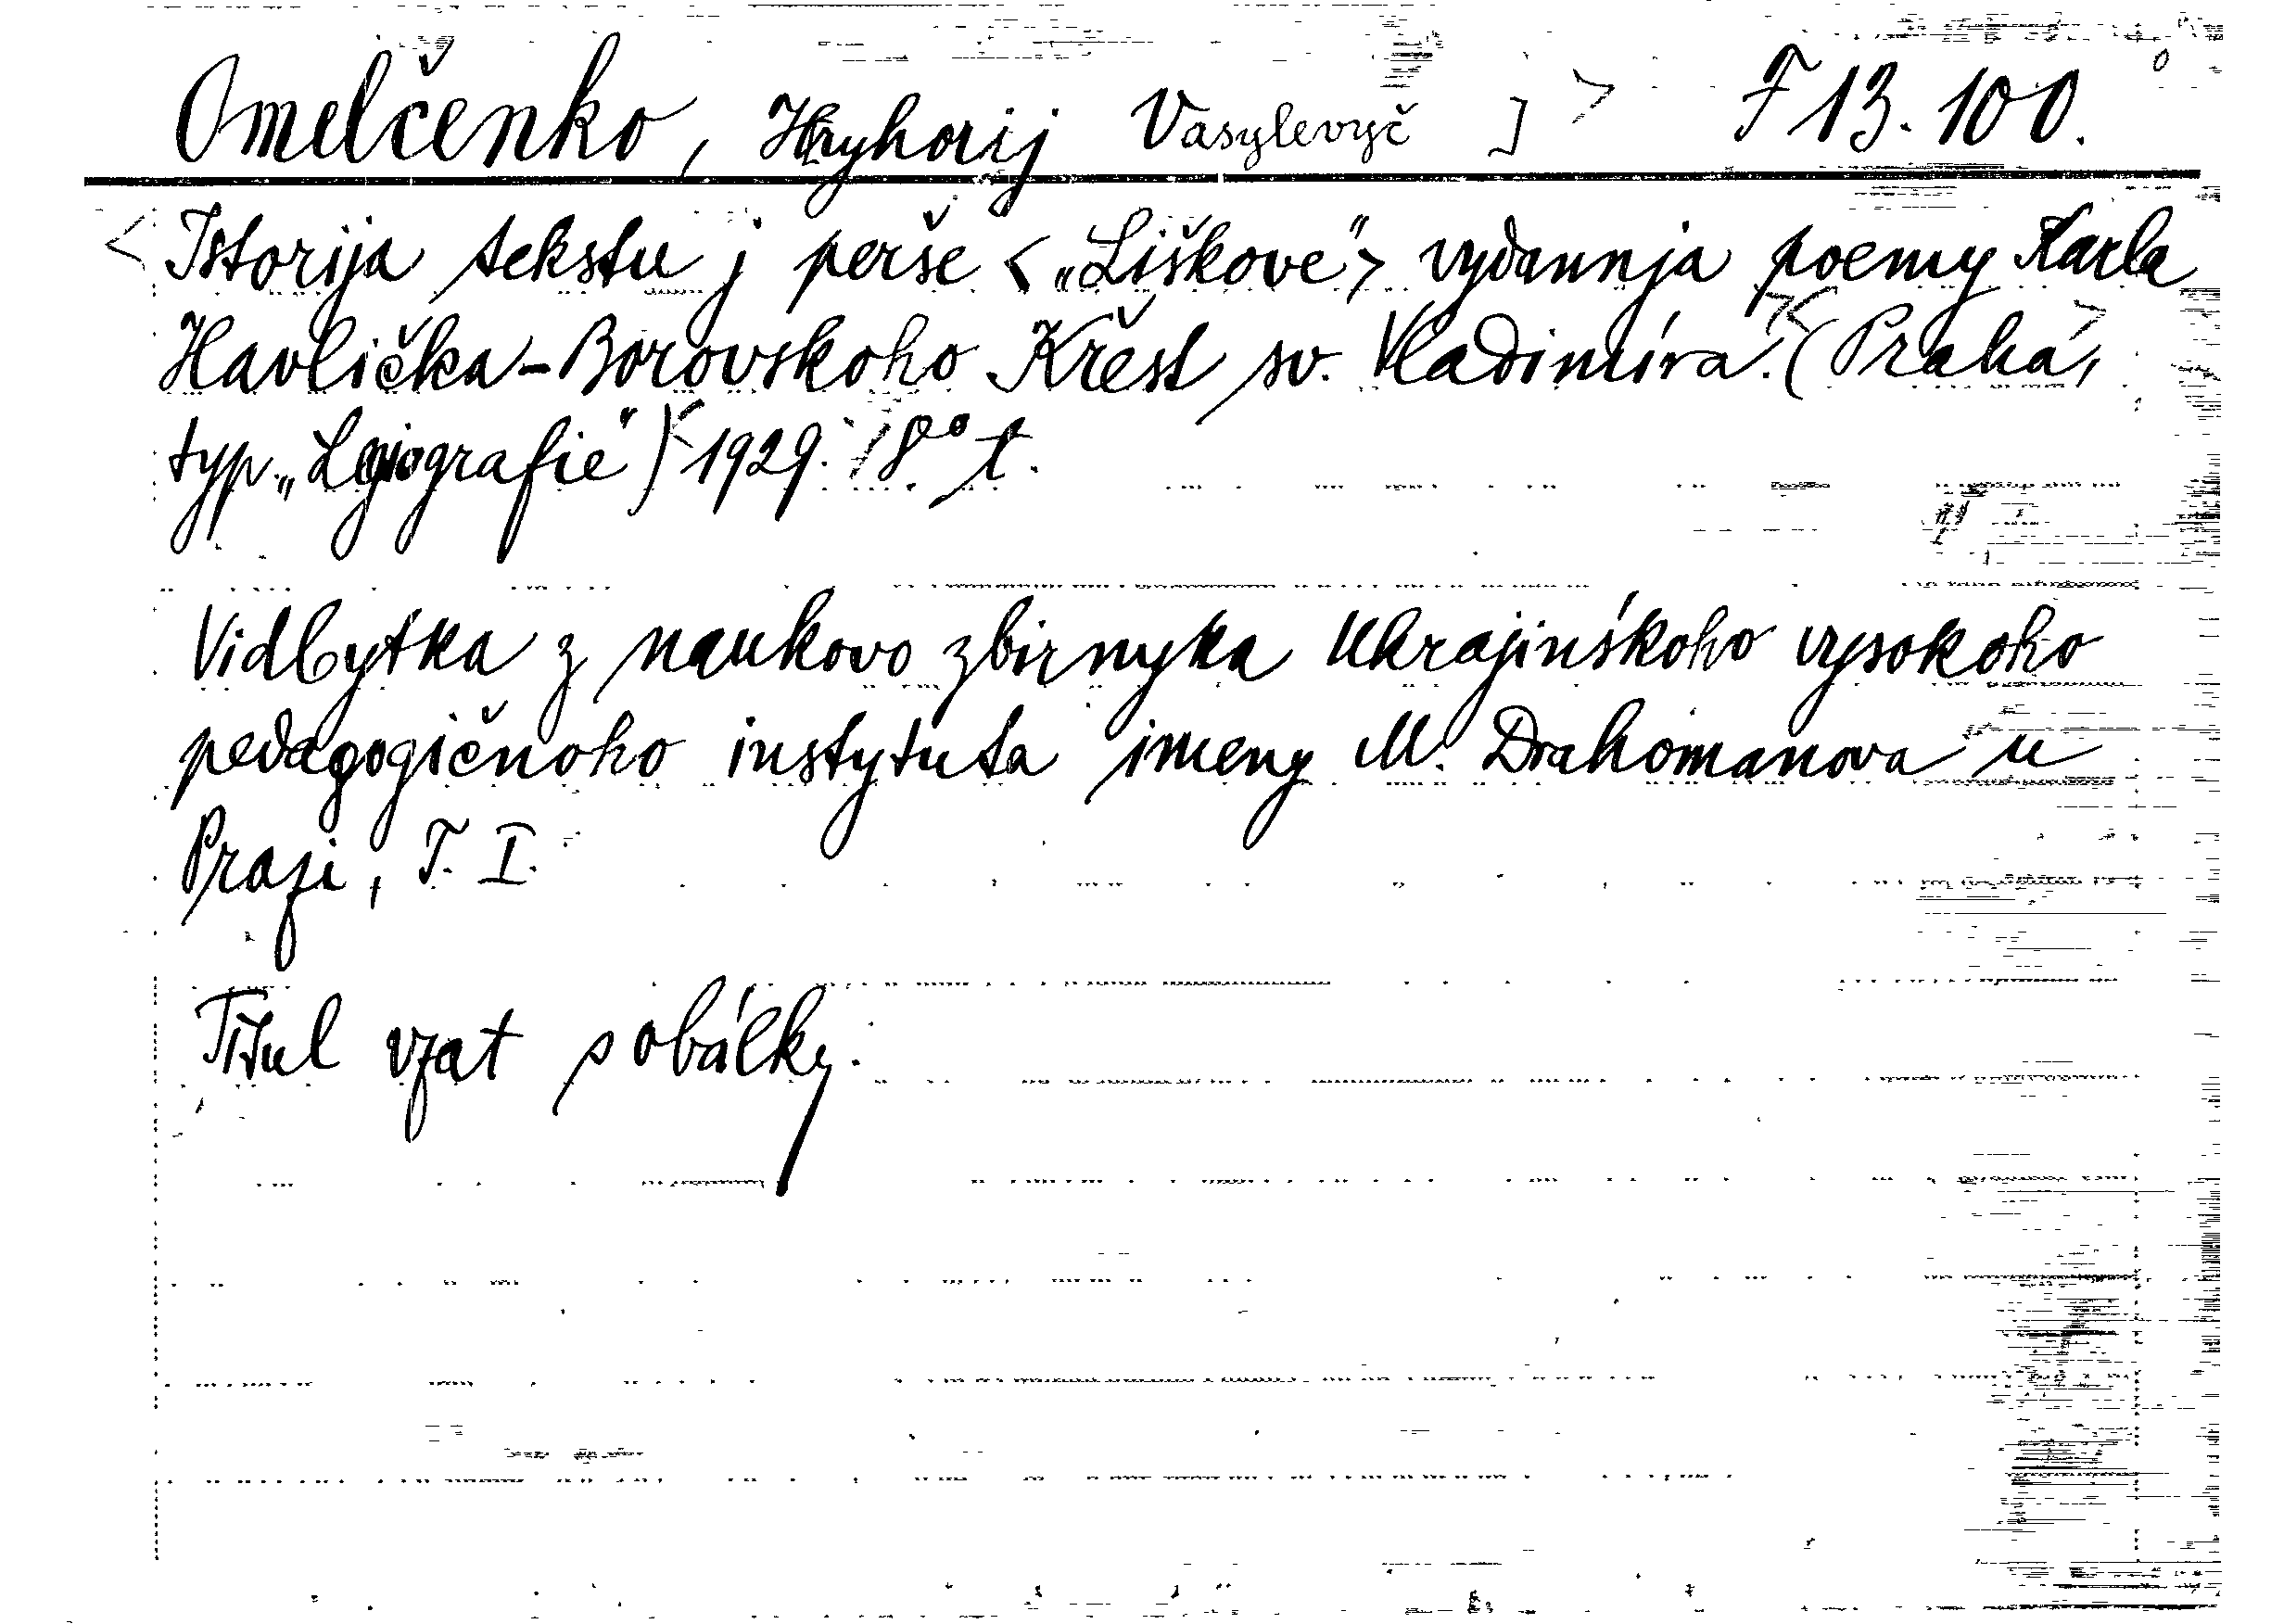 Omelčenko, Hryhorij Vasylevyč ] > F 13.100.
< Istorija tekstu j perše < „Liškove" > vydannja poemy Karla
Havlička-Borovskoho Křest sv. Vladimíra. >< (Praha >,
typ. „Legiografie") < 1929. 8° t.
Vidbytka z naukovo zbirnyka Ukrajinśkoho vysokoho
pedagogičnoho instytuta imeny M. Drahomanova u
Prazi, T. I.
Titul vzat s obálky.